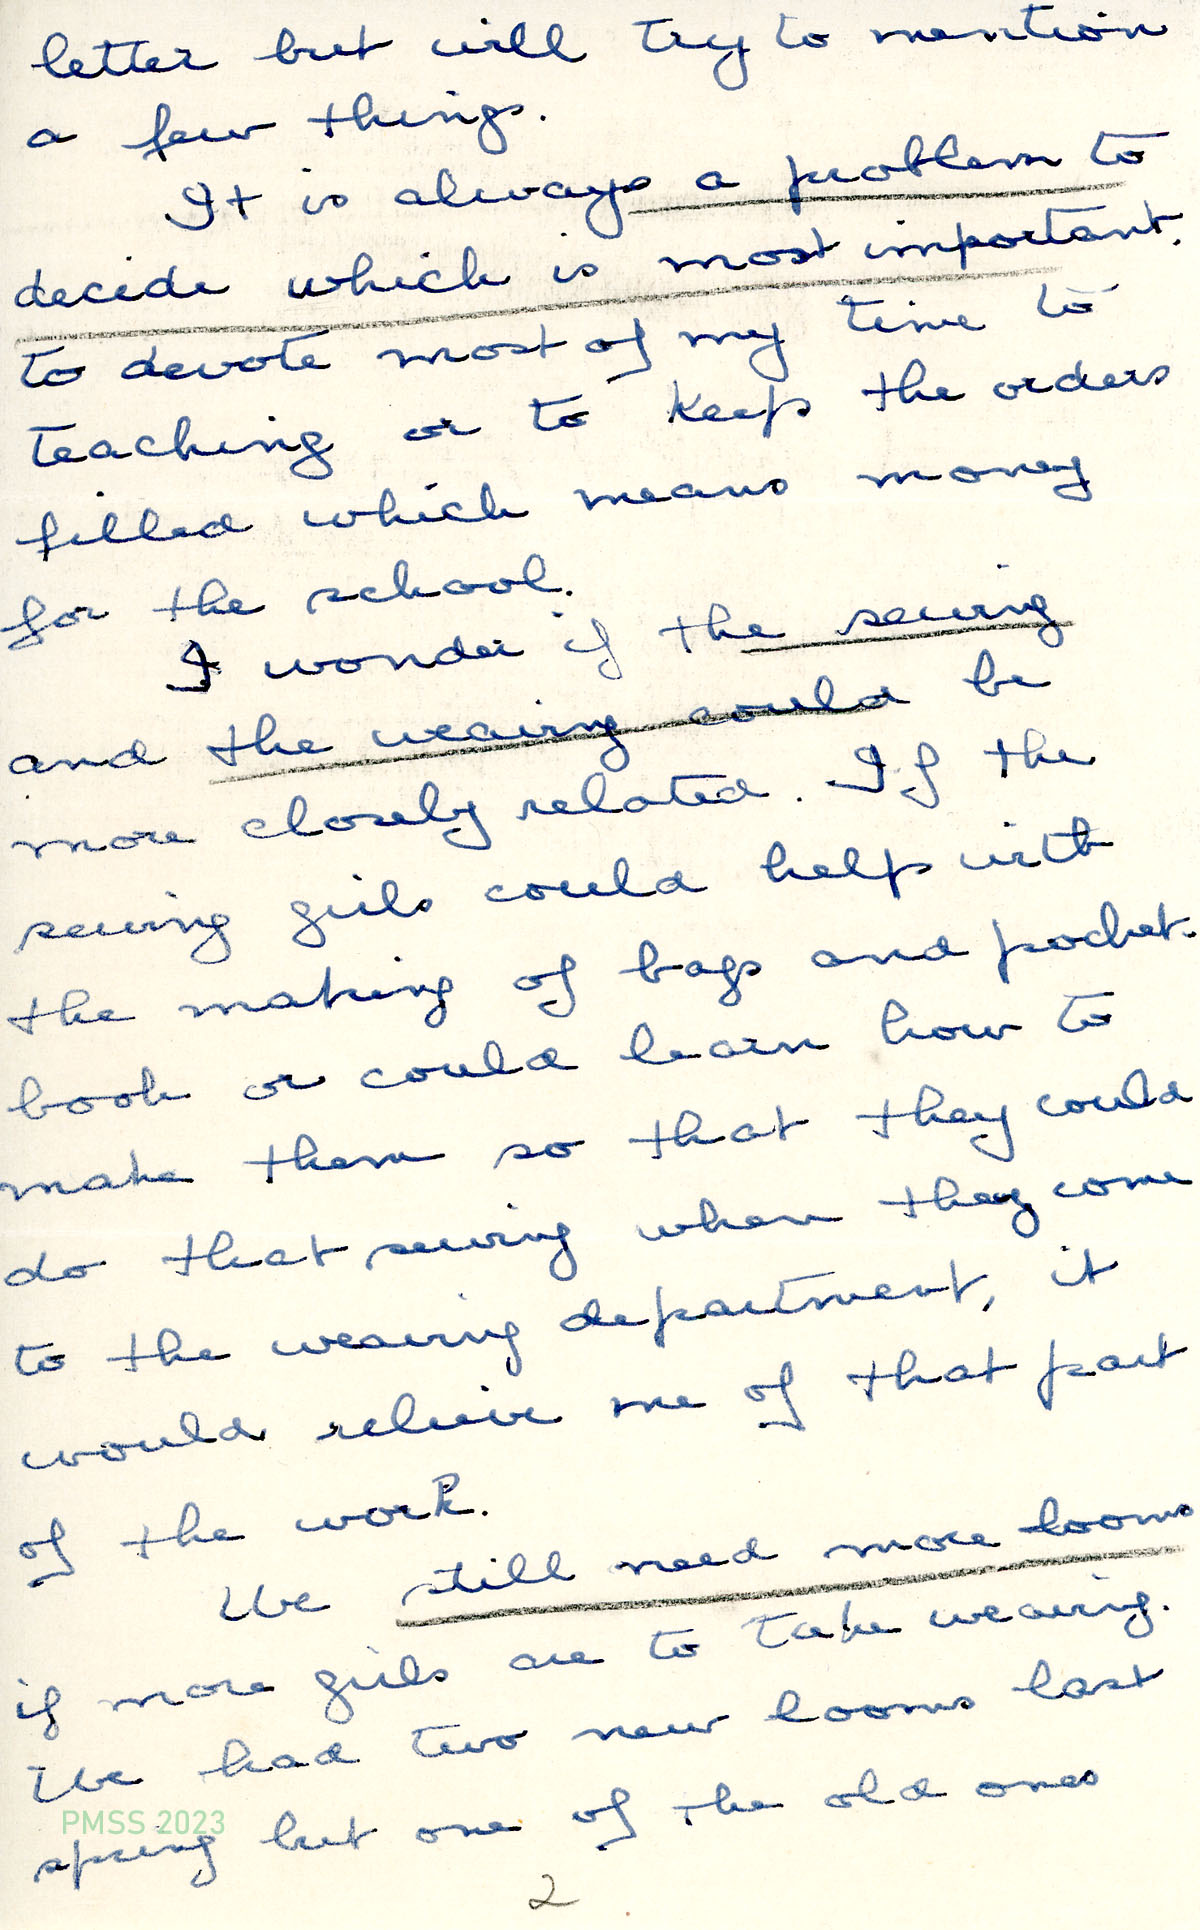 letter but will try to mention
a few things.
It is always a problem to
decide which is most important,
to devote most of my time to
teaching or to keep the orders
filled which means money
for the school.
I wonder if the sewing
and the weaving could be
more closely related. If the
sewing girls could help with
the making of bags and pocket-
book or could learn how to
make them so that they could
do that sewing when they come
to the weaving department, it
would relieve me of that part
of the work.
We still need more looms
if more girls are to take weaving.
We had two new looms last
spring but one of the old ones
PMSS 2023
2